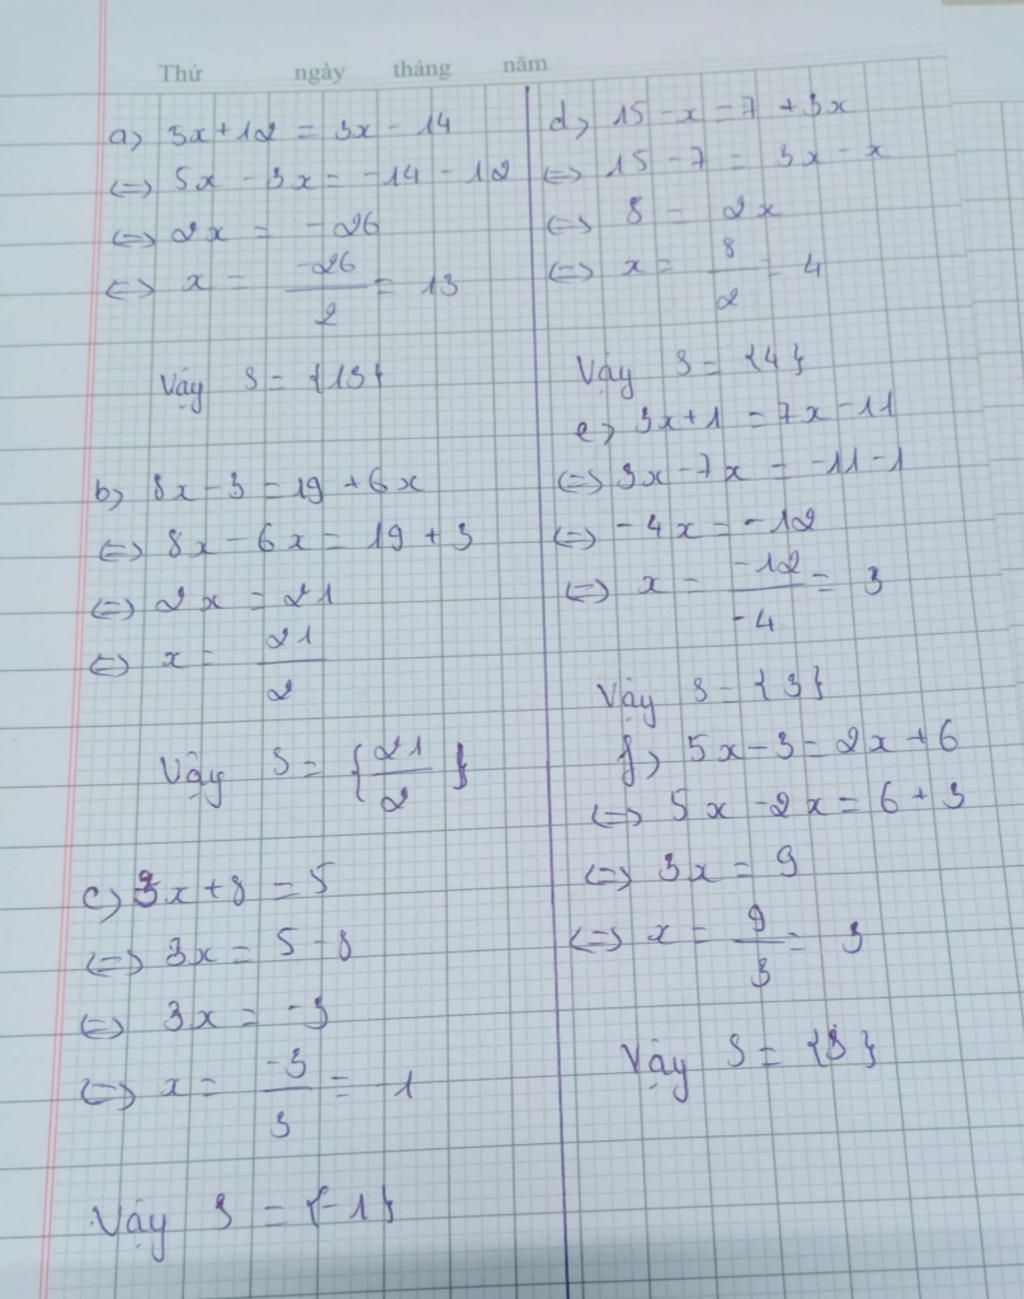 Thứ ngày tháng năm
a) 5x + 12 = 3x - 14
<=> 5x - 3x = -14 - 12
<=> 2x = -26
<=> x = -26/2 = 13
Vậy S = {13}
b) 8x - 3 = 19 + 6x
<=> 8x - 6x = 19 + 3
<=> 2x = 21
<=> x = 21/2
Vậy S = {21/2}
c) 3x + 8 = 5
<=> 3x = 5 - 8
<=> 3x = -3
<=> x = -3/3 = -1
Vậy S = {-1}
d) 15 - x = 7 + 3x
<=> 15 - 7 = 3x - x
<=> 8 = 2x
<=> x = 8/2 = 4
Vậy S = {4}
e) 3x + 1 = 7x - 11
<=> 3x - 7x = -11 - 1
<=> -4x = -12
<=> x = -12/-4 = 3
Vậy S = {3}
f) 5x - 3 = 2x + 6
<=> 5x - 2x = 6 + 3
<=> 3x = 9
<=> x = 9/3 = 3
Vậy S = {3}